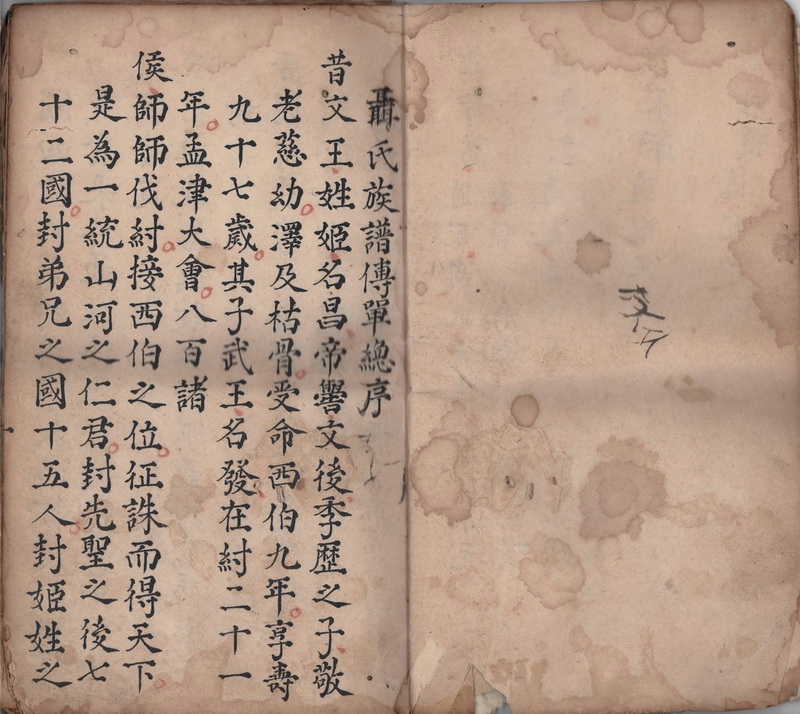 聶氏族譜傳單總序
昔文王姓姬名昌帝嚳文後季歷之子敬
老慈幼澤及枯骨受命西伯九年享壽
九十七歲其子武王名發在紂二十一
年孟津大會八百諸
侯師師伐紂接西伯之位征誅而得天下
是為一統山河之仁君封先聖之後七
十二國封弟兄之國十五人封姬姓之